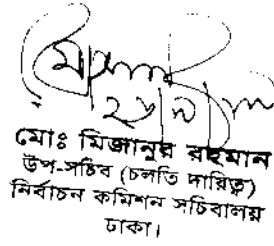 মোঃ মিজানুর রহমান
উপ-সচিব (চলতি দায়িত্ব)
নির্বাচন কমিশন সচিবালয়
ঢাকা।